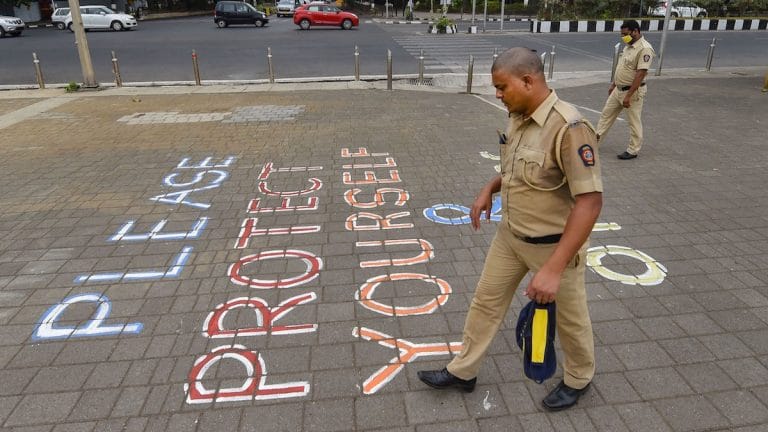 PLEASE
PROTECT
YOURSELF
&